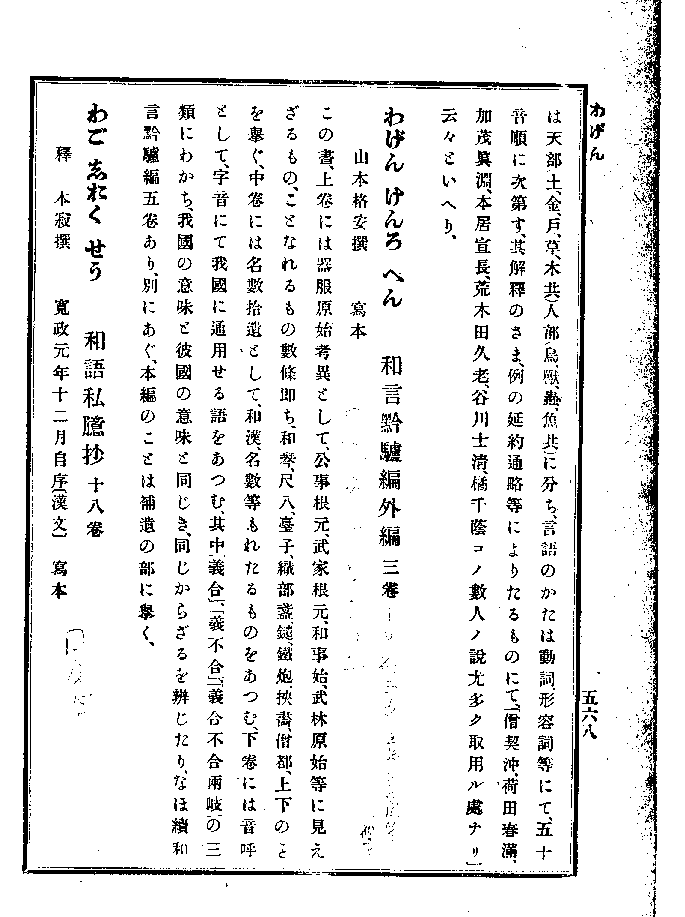 わげん
五六八
は天部(土、金、戸、草、木共)人部(鳥、獸、蟲、魚共)に分ち、言語のかたは動詞、形容詞等にて、五十
音順に次第す、其解釋のさま、例の延約通略等によりたるものにて、「僧契沖、荷田春滿、
加茂眞淵、本居宣長、荒木田久老、谷川士淸、橘千蔭コノ數人ノ說尤多ク取用ル處ナリ」
云々といへり、
わげん けんろ へん 和言黔驢編外編 三卷
山本格安撰 寫本
この書、上卷には器服原始考異として、公事根元、武家根元、和事始、武林原始等に見え
ざるもの、ことなれるもの數條即ち、和琴、尺八、臺子、織部盞、鎚、鐵炮、挾書、僧都、上下のこと
を擧ぐ、中卷には名數拾遺として、和漢、名數等もれたるものをあつむ、下卷には音呼
として、字音にて我國に通用せる語をあつむ、其中「義合」、「義不合」、「義合不合兩岐」の三
類にわかち、我國の意味と彼國の意味と同じき、同じからざるを辨じたり、なほ續和
言黔驢編五卷あり、別にあぐ、本編のことは補遺の部に擧く、
わご しおく せう 和語私臆抄 十八卷
釋 本寂撰 寬政元年十二月自序(漢文) 寫本